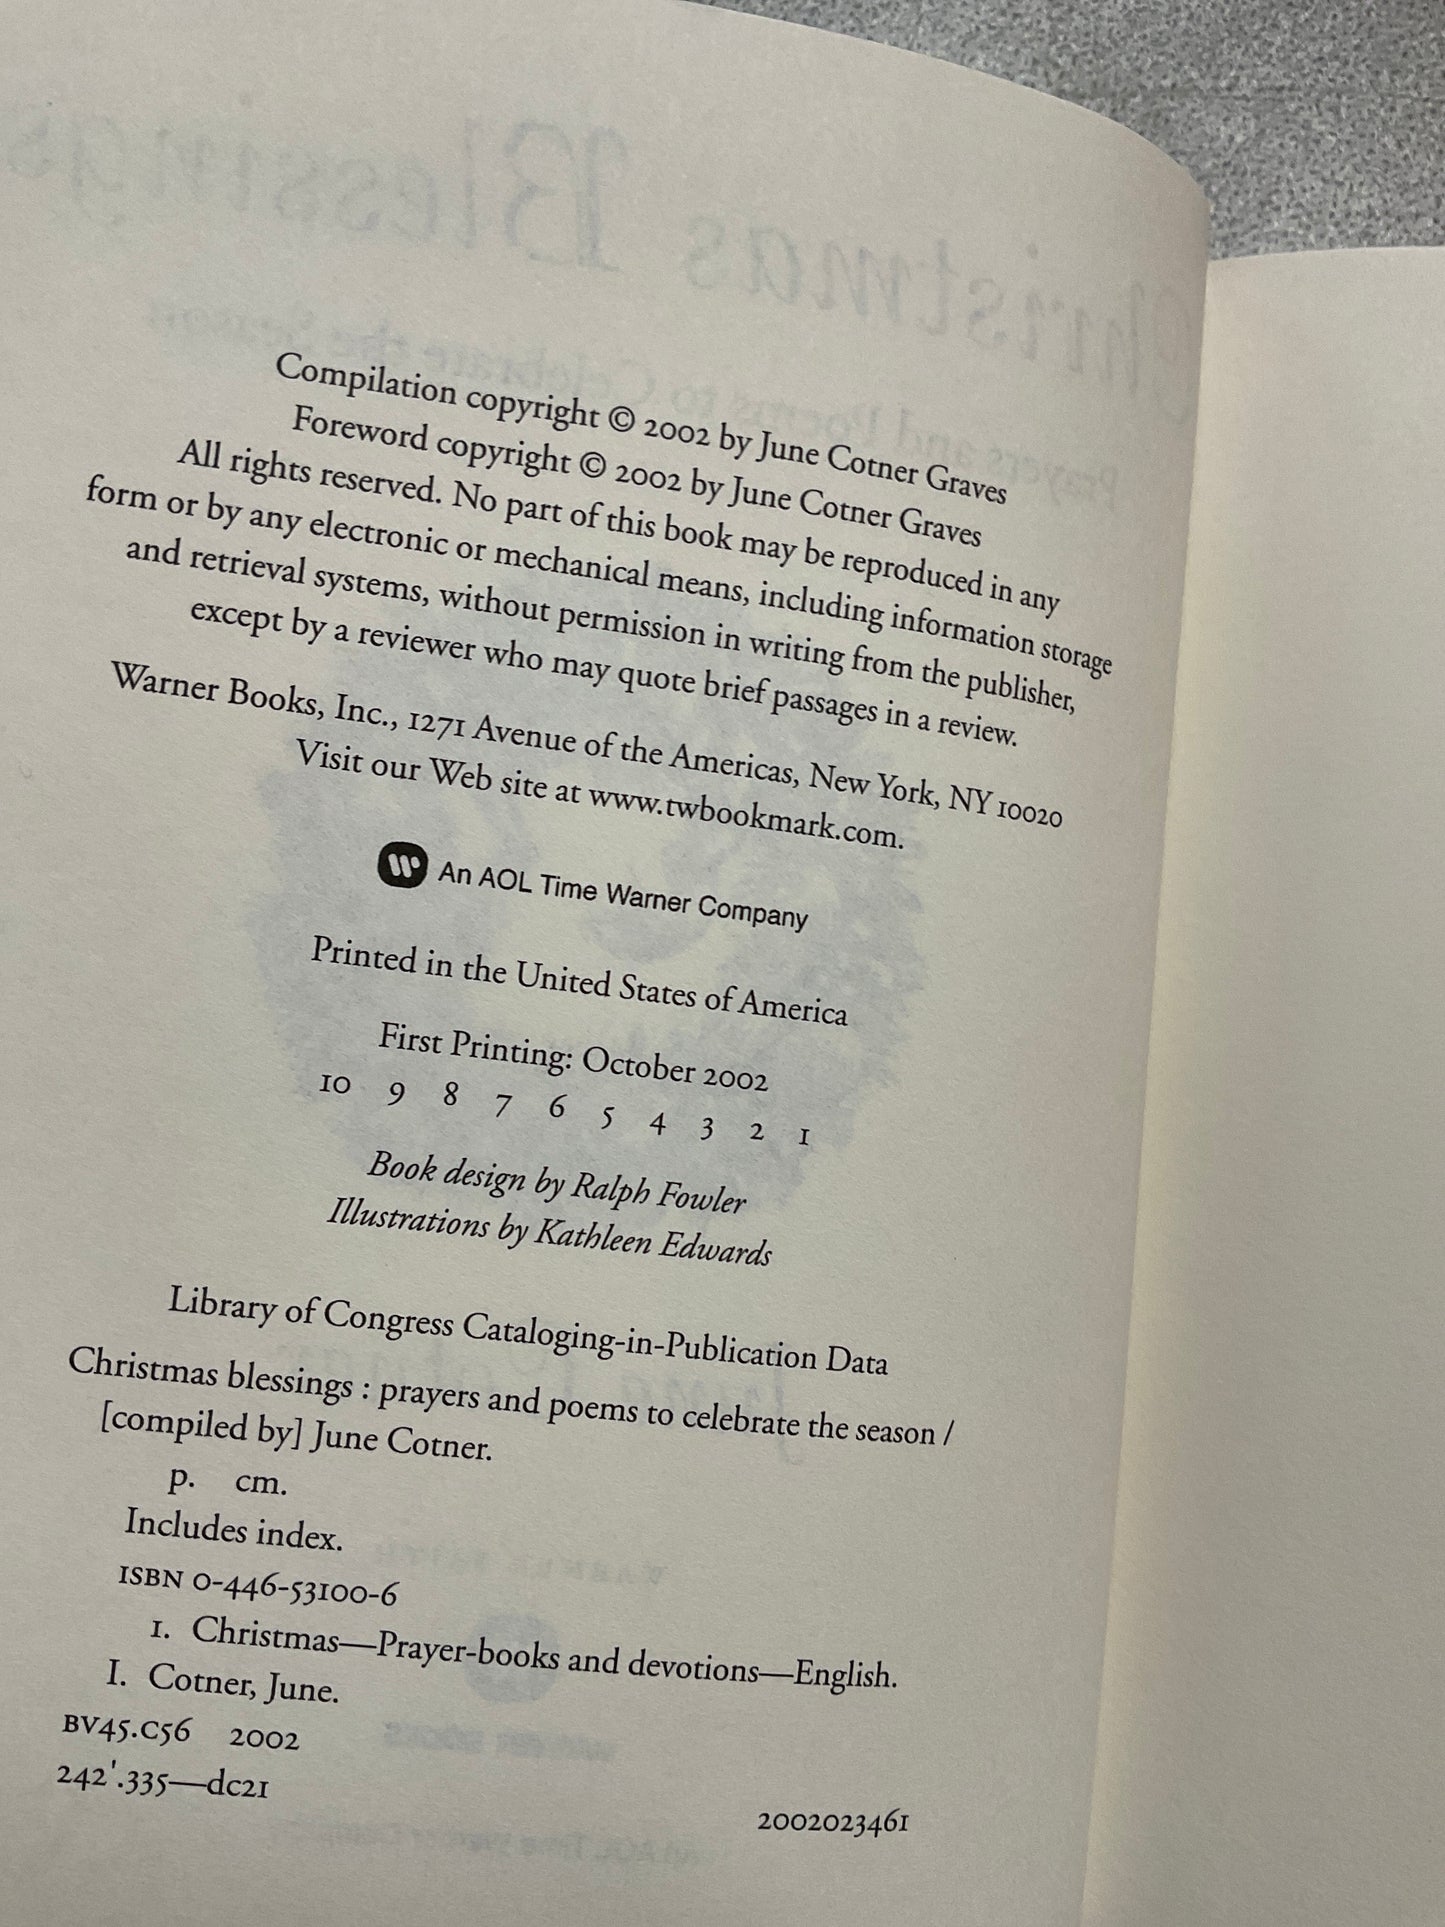 Christmas Blessings
Prayers and Poems to Celebrate the Season
Compilation copyright © 2002 by June Cotner Graves
Foreword copyright © 2002 by June Cotner Graves
All rights reserved. No part of this book may be reproduced in any
form or by any electronic or mechanical means, including information storage
and retrieval systems, without permission in writing from the publisher,
except by a reviewer who may quote brief passages in a review.
Warner Books, Inc., 1271 Avenue of the Americas, New York, NY 10020
Visit our Web site at www.twbookmark.com.
An AOL Time Warner Company
Printed in the United States of America
First Printing: October 2002
10 9 8 7 6 5 4 3 2 1
Book design by Ralph Fowler
Illustrations by Kathleen Edwards
Library of Congress Cataloging-in-Publication Data
Christmas blessings : prayers and poems to celebrate the season /
[compiled by] June Cotner.
p. cm.
Includes index.
ISBN 0-446-53100-6
1. Christmas—Prayer-books and devotions—English.
I. Cotner, June.
BV45.C56 2002
242'.335—dc21
2002023461